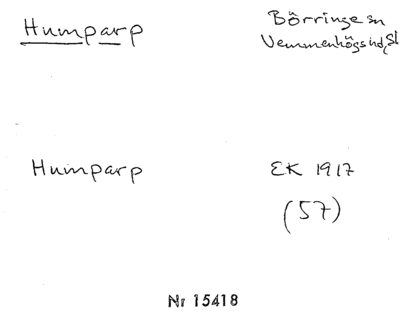 Humparp
Börringe sn
Vemmenhögs hd, Sk
Humparp
EK 1917
(57)
Nr 15418